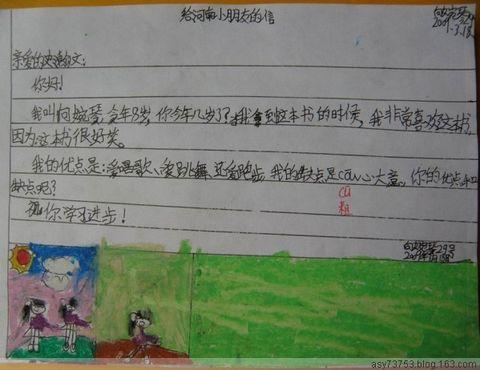 给河南小朋友的信
亲爱的
你好!
我叫向婉琴,今年8岁,你今年几岁了?我拿到这本书的时候,我非常喜欢这本书,
因为这本书很好笑。
我的优点是:爱唱歌、爱跳舞、还爱跑步。我的缺点是cū心大意。你的优点和
缺点呢?
cū
粗
祝你学习进步!
asy73753.blog.163.com